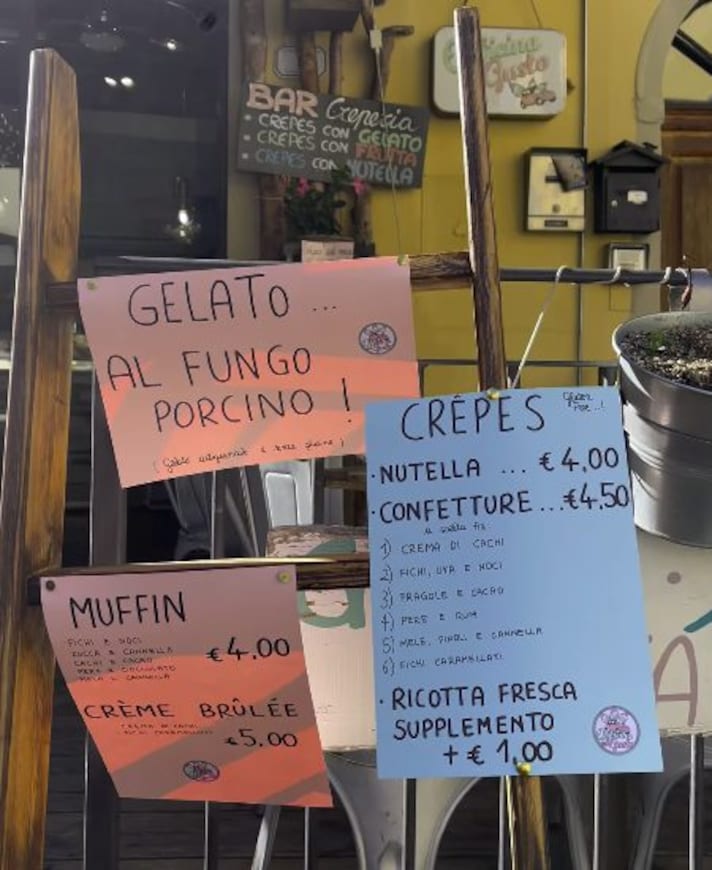 Officina
Gusto
BAR Crepesia
• CREPES CON GELATO
• CREPES CON FRUTTA
• CREPES CON NUTELLA
GELATO ...
AL FUNGO
PORCINO !
CRÊPES
Gluten
Free ..!
• NUTELLA ... € 4,00
• CONFETTURE ... €4.50
a scelta fra:
1) CREMA DI CACHI
2) FICHI, UVA E NOCI
3) FRAGOLE E CACAO
4) PERE E RUM
5) MELE, PINOLI E CANNELLA
6) FICHI CARAMELLATI
• RICOTTA FRESCA
SUPPLEMENTO
+ € 1,00
MUFFIN
FICHI E NOCI
ZUCCA E CANNELLA
CACHI E CACAO
PERE E CIOCCOLATO
MELA E CANNELLA
€4.00
CRÈME BRÛLÉE
CREMA DI CACHI
FICHI CARAMELLATI
€5.00